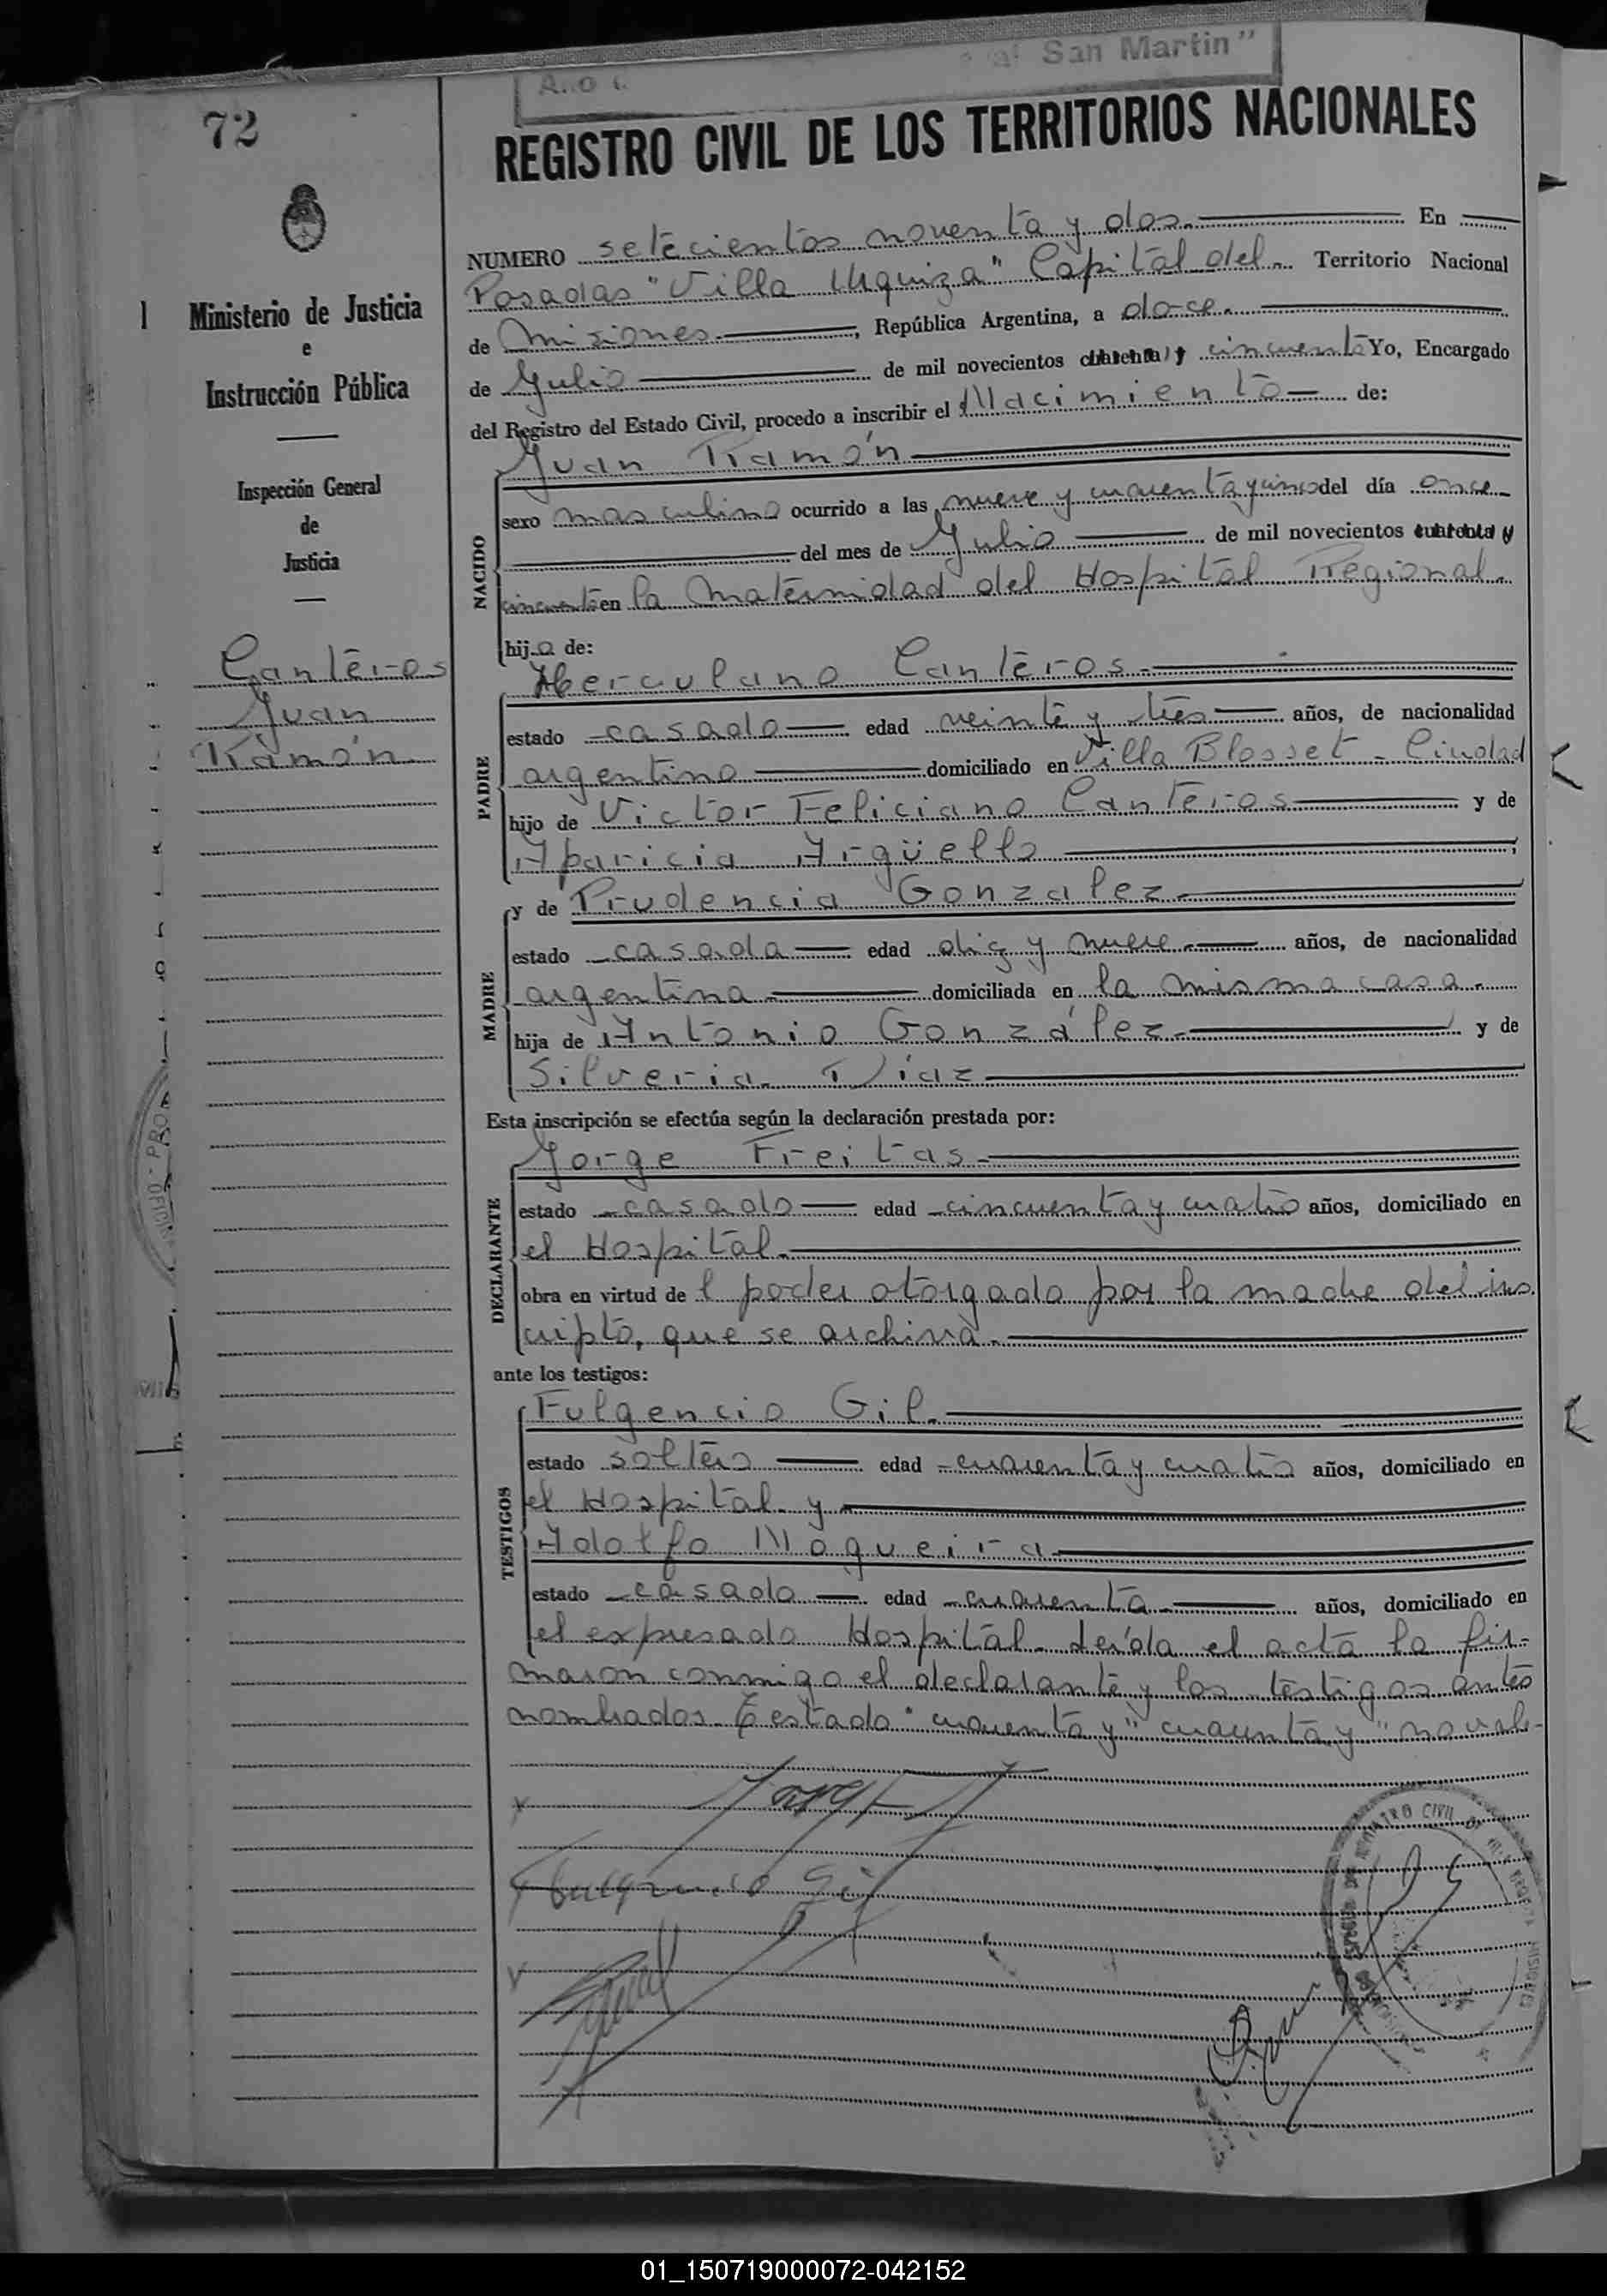 San Martin"
72
REGISTRO CIVIL DE LOS TERRITORIOS NACIONALES
NUMERO setecientos noventa y dos. En
Posadas "Villa Urquiza" Capital del Territorio Nacional
de Misiones, República Argentina, a doce.
de Julio de mil novecientos cuarenta y cincuenta Yo, Encargado
del Registro del Estado Civil, procedo a inscribir el Nacimiento de:
Ministerio de Justicia
e
Instrucción Pública
Inspección General
de
Justicia
Canteros
Juan
Ramón
NACIDO
Juan Ramón
sexo masculino ocurrido a las nueve y cuarenta y cinco del día once
del mes de Julio de mil novecientos cuarenta y
cincuenta en la Maternidad del Hospital Regional.
hijo de:
PADRE
Herculano Canteros
estado casado edad veinte y tres años, de nacionalidad
argentino domiciliado en Villa Blosset - Ciudad
hijo de Victor Feliciano Canteros y de
Aparicia Argüello
MADRE
y de Prudencia Gonzalez
estado casada edad diez y nueve años, de nacionalidad
argentina domiciliada en la misma casa.
hija de Antonio González y de
Silveria Díaz
Esta inscripción se efectúa según la declaración prestada por:
DECLARANTE
Jorge Freitas
estado casado edad cincuenta y cuatro años, domiciliado en
el Hospital.
obra en virtud de l poder otorgado por la madre del ins
cripto, que se archiva.
ante los testigos:
TESTIGOS
Fulgencio Gil.
estado soltero edad cuarenta y cuatro años, domiciliado en
el Hospital y
Adolfo Moqueira
estado casado edad cuarenta años, domiciliado en
el expresado Hospital. Leída el acta la fir-
maron conmigo el declarante y los testigos antes
nombrados. Testado "cuarenta y" "cuarenta y" no vale-
Fulgencio Gil
01_150719000072-042152